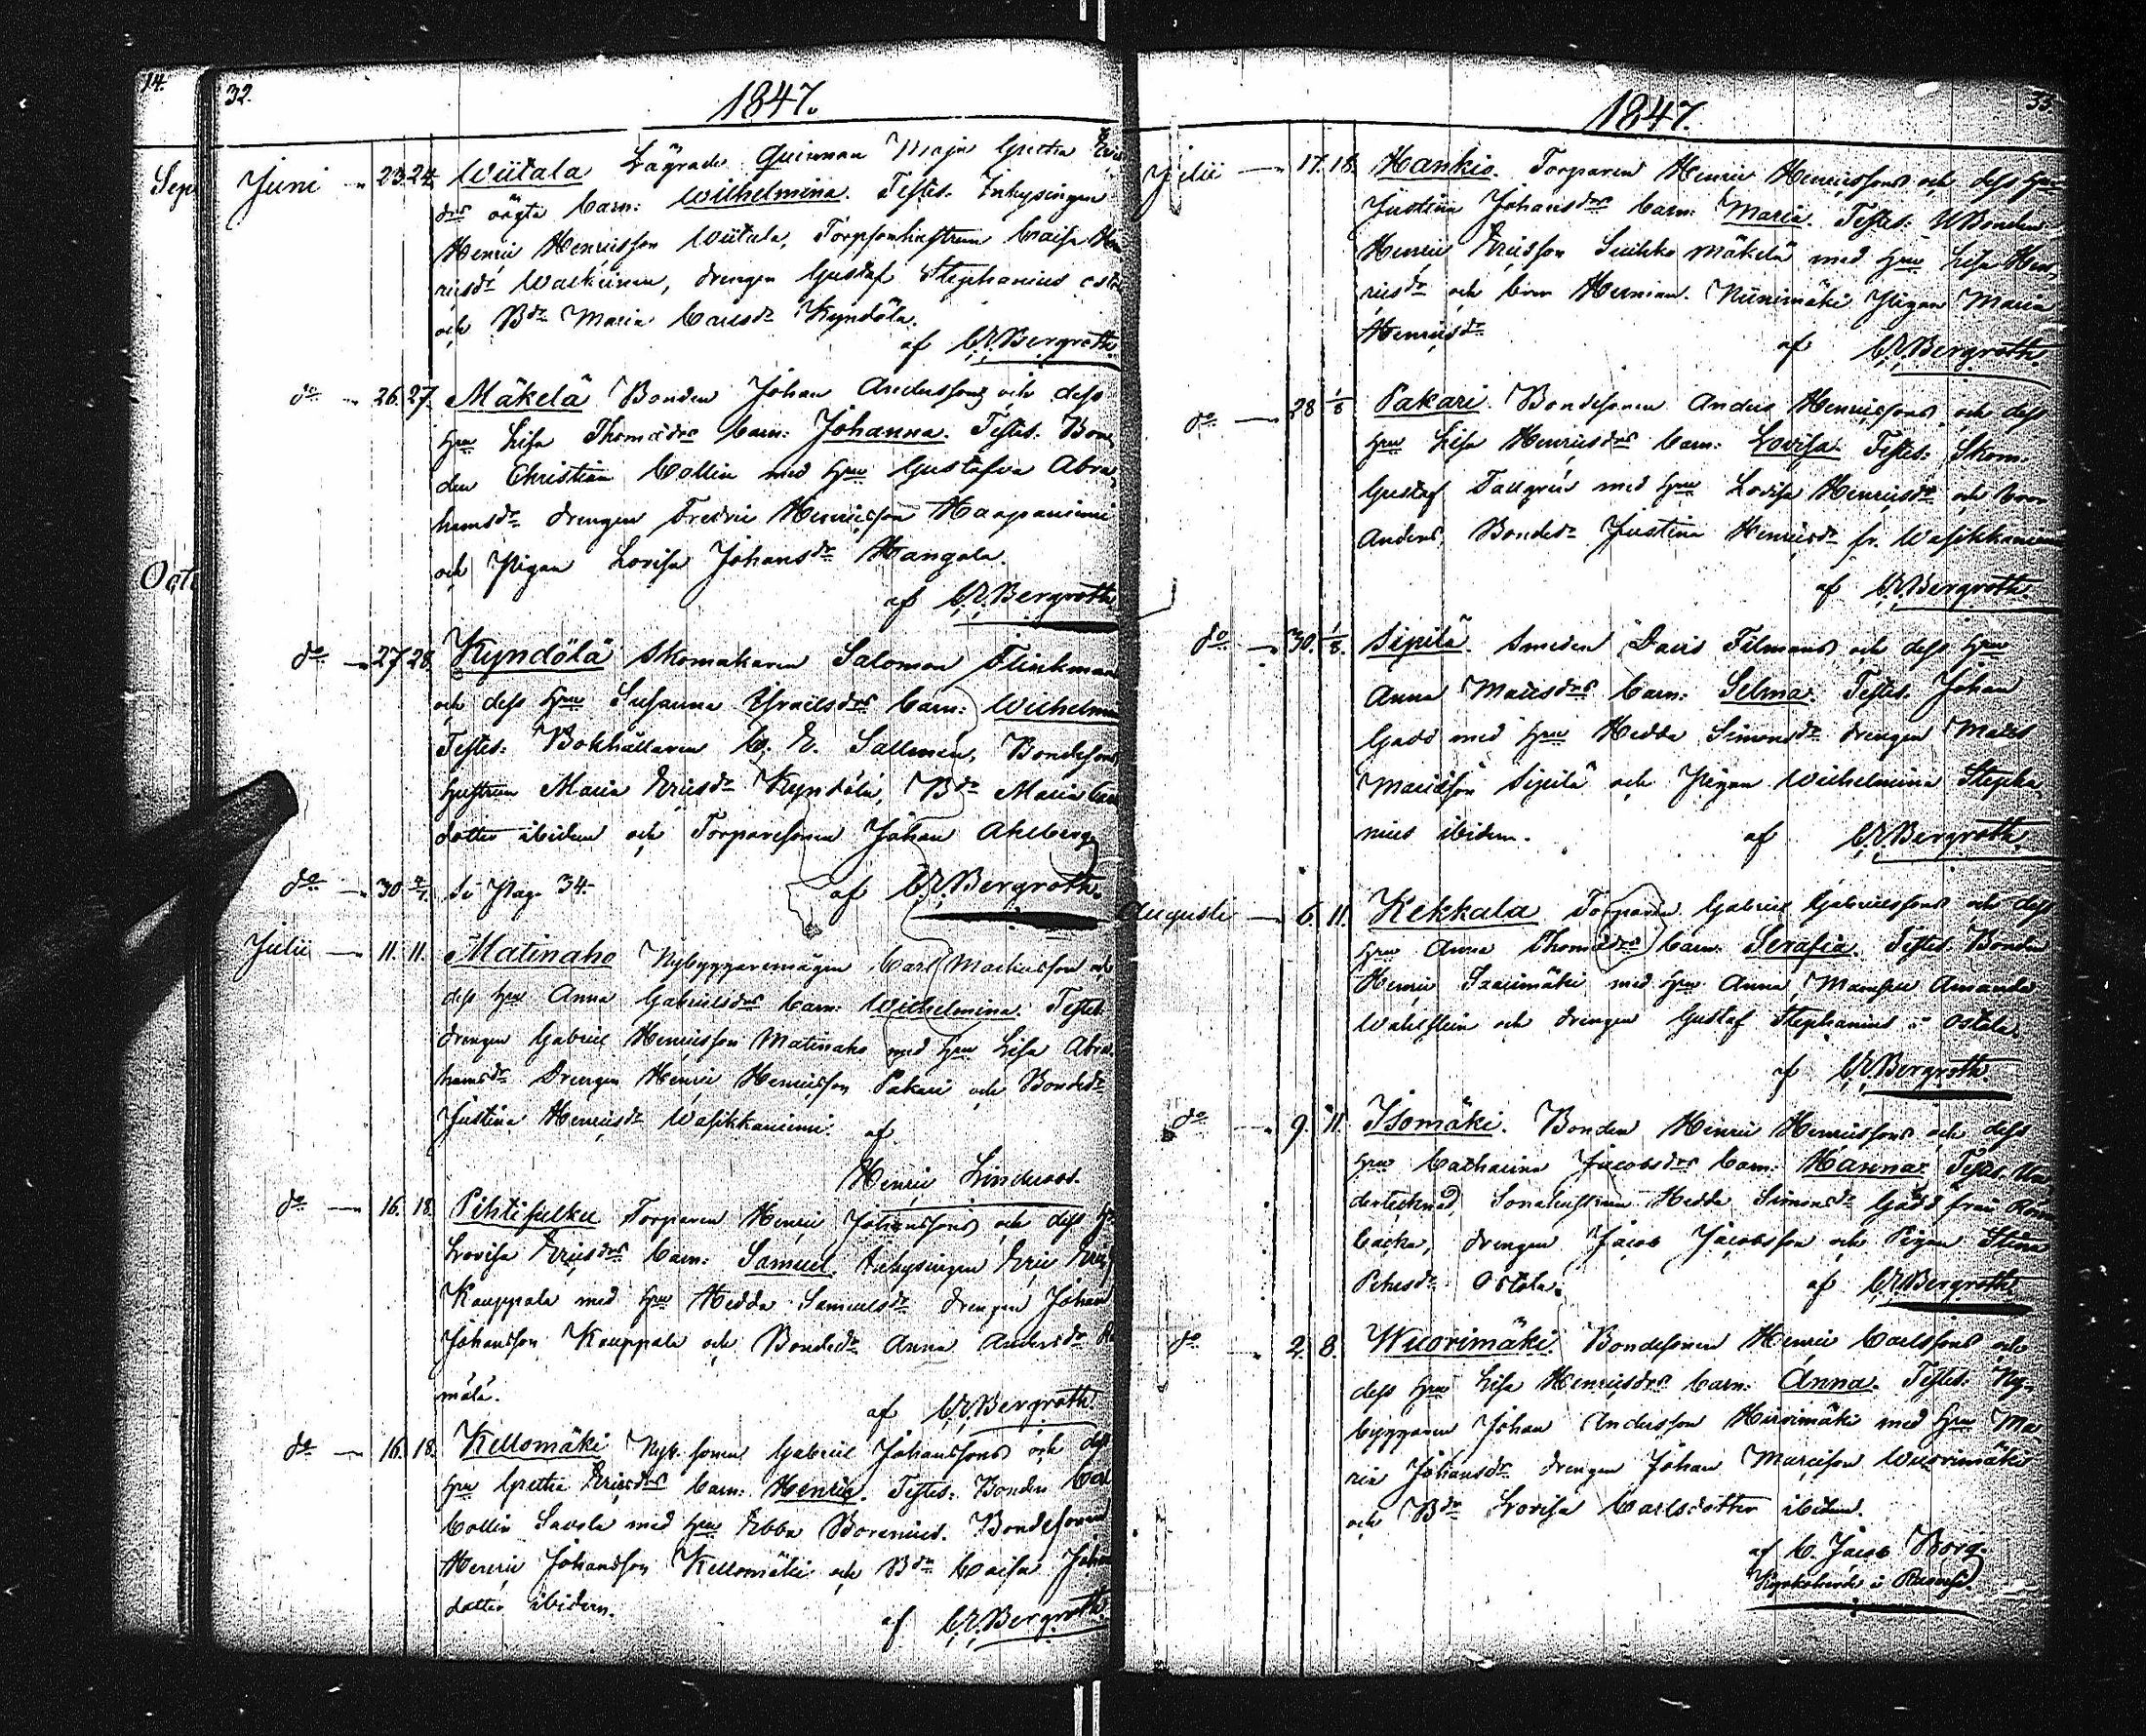 14.
Sep
Oct
32.
1847.
Juni 23. 24. Wiitala Lägrade Quinnan Maja Greta
drs oägta barn: Wilhelmina. Testes. Inhysingen
Henric Henricsson Wiitala, Torpsonhustrun Caisa Hen
ricsdr drengen Gustaf Stephanius
och Bdr Maria Carlsdr Kyndölä.
af C.R. Bergroth.
do 26. 27. Mäkelä Bonden Johan Anderssons och dess
hru Lisa Thomædrs barn: Johanna. Testes: Bon
den Christian Collin med hru Gustafva Abra
hamsdr drengen Fredric Henricsson Haapaniemi
och Pigan Lovisa Johansdr Kangola.
af C.R. Bergroth
do 27. 28. Kyndölä Skomakaren Salomon Flinkman
och dess hru Susanna Israelsdrs barn: Wilhelm
Testes: Bokhållaren Sallmén, Bondesons
hustrun Maria Ericsdr Kyndölä, Bdr Maria Carls
dotter ibidem och Torparesonen Johan Ahlberg
af C.R. Bergroth.
do 30. 2/7. Se Pag. 34.
Julii 11. 11. Matinaho Nybyggaremågen Carl Markusson och
dess hru Anna Gabrielsdrs barn: Wilhelmina. Testes.
drengen Gabriel Henricsson Matinaho med hru Lisa Abra
hamsdr Drengen Henric Henricsson Pakari och Bondedr
Justina Henricsdr Wasikkaniemi. af
Henric Lindroos.
do 16. 18. Pihtisulku Torparen Henric Johanssons och dess hru
Lovisa Ericsdrs barn: Samuel. Inhysingen Eric Erics
Kauppala med hru Hedda Samuelsdr drengen Johan
Johansson Kauppala och Bondedr Anna Andersdr
mälä.
af C.R. Bergroth.
do 16. 18. Kellomäki Nyb. sonen Gabriel Johanssons och dess
hru Greta Ericsdrs barn: Henric. Testes: Bonden Carl
Collin Savola med hru Ebba Borenius. Bondesonen
Henric Johansson Kellomäki och Bdr Caisa Johans
dotter ibidem.
af C.R. Bergroth.
33.
1847.
Julii 17. 18. Hankio. Torparen Henric Henricssons och dess hru
Justina Johansdrs barn: Maria. Testes: Bonden
Henric Ericsson Mäkelä med hru Lisa Hen
ricsdr och Niinimäki Pigan Maria
Henricsdr
af C.R. Bergroth.
do 28 1/8 Pakari. Bondesonen Anders Henricssons och dess
hru Lisa Henricsdrs barn: Lovisa. Testes: Skom.
Gustaf Tallgrén med hru Lovisa Henricsdr och bror
Anders, Bondedr Justina Henricsdr fr. Wasikkaniemi
af C.R. Bergroth.
do 30. 1/8. Sipilä. Smeden David Tilmans och dess hru
Anna Matsdrs barn: Selma. Testes. Johan
Gadd med hru Hedda Simonsdr drengen Matts
Mariasson Sipilä och Pigan Wilhelmina Stepha
nius ibidem. af C.R. Bergroth.
Augusti 6. 11. Kekkala Torparen Gabriel Gabrielssons och dess
hru Anna Thomædrs barn: Serafia. Testes. Bonden
Henric med hru Anna, Mamsell Amanda
Wahlstein och drengen Gustaf Stephanius i Ostola.
af C.R. Bergroth.
do 9. 11. Isomäki. Bonden Henric Henricssons och dess
hru Catharina Jacobsdrs barn: Hanna. Testes. Un
dertecknad, Sonehustrun Hedda Simonsdr Gadd från
backa, drengen Jacob Jacobsson och Pigan Stina
Ostola. af C.R. Bergroth.
do 2. 8. Wuorimäki. Bondesonen Henric Carlssons och
dess hru Lisa Henricsdrs barn: Anna. Testes: Ny
byggaren Johan Andersson Hirvimäki med hru Ma
ria Johansdr drengen Johan Wuorimäki
och Bdr Lovisa Carlsdotter ibidem.
af C. Jacob Borg.
Kyrkoherde i